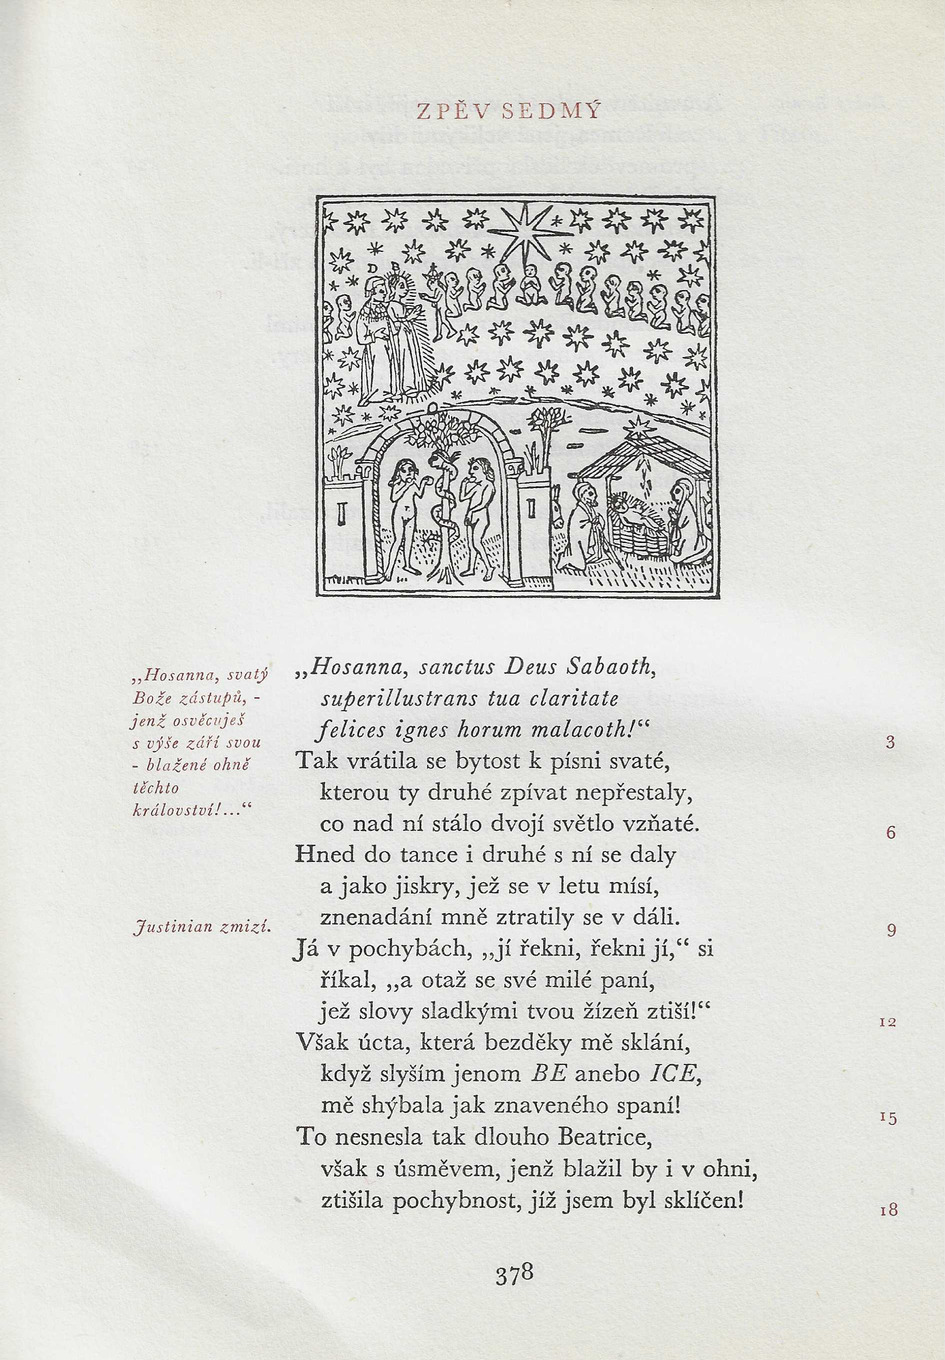 ZPĚV SEDMÝ
D B
„Hosanna, svatý
Bože zástupů, -
jenž osvěcuješ
s výše září svou
- blažené ohně
těchto
království!...“
„Hosanna, sanctus Deus Sabaoth,
superillustrans tua claritate
felices ignes horum malacoth!“
3
Tak vrátila se bytost k písni svaté,
kterou ty druhé zpívat nepřestaly,
co nad ní stálo dvojí světlo vzňaté.
6
Hned do tance i druhé s ní se daly
a jako jiskry, jež se v letu mísí,
znenadání mně ztratily se v dáli.
9
Justinian zmizí.
Já v pochybách, „jí řekni, řekni jí,“ si
říkal, „a otaž se své milé paní,
jež slovy sladkými tvou žízeň ztiší!“
12
Však úcta, která bezděky mě sklání,
když slyším jenom BE anebo ICE,
mě shýbala jak znaveného spaní!
15
To nesnesla tak dlouho Beatrice,
však s úsměvem, jenž blažil by i v ohni,
ztišila pochybnost, jíž jsem byl sklíčen!
18
378